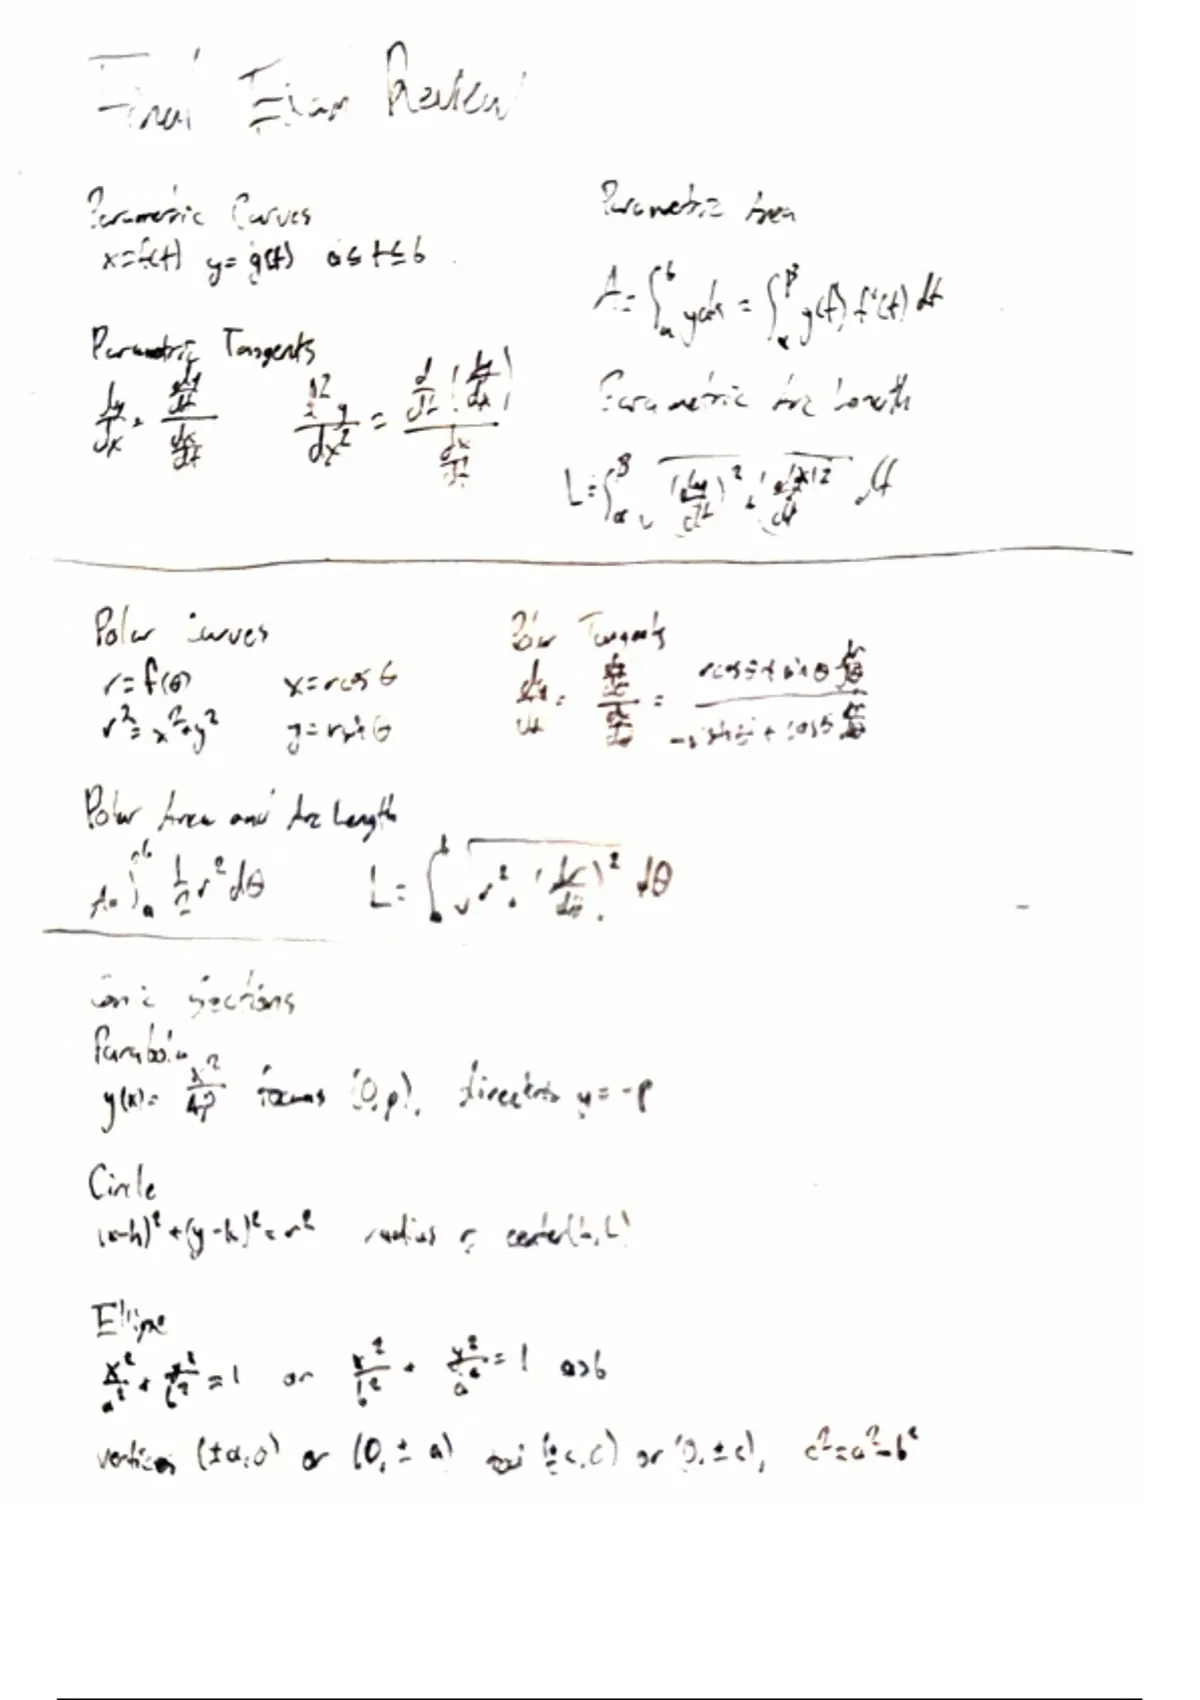 Final Exam Review
Parametric Curves
x=f(t) y=g(t) a≤t≤b
Parametric Tangents
dy/dx = (dy/dt)/(dx/dt) d²y/dx² = (d/dt(dy/dx))/(dx/dt)
Parametric Area
A=∫_a^b ydx = ∫_α^β g(t) f'(t) dt
Parametric Arc Length
L=∫_α^β √((dy/dt)²+(dx/dt)²) dt
Polar Curves
r=f(θ) x=rcosθ
r²=x²+y² y=rsinθ
Polar Tangents
rcosθ+sinθ dr/dθ
Polar Area and Arc Length
A=∫_a^b 1/2 r² dθ L=∫_a^b √(r²+(dr/dθ)²) dθ
Conic Sections
Parabola
y(x)= x²/4p focus (0,p), directrix y=-p
Circle
(x-h)²+(y-k)²=r² radius r, center(h,k)
Ellipse
x²/a² + y²/b² =1 or x²/b² + y²/a² =1 a>b
vertices (±a,0) or (0,±a) foci or (0,±c), c²=a²-b²